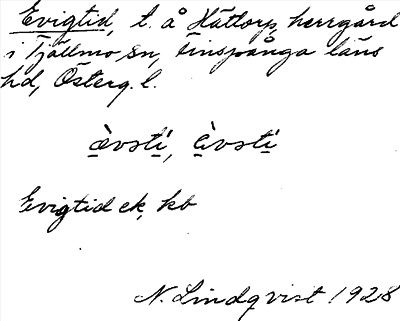 Evigtid, t. å Hättorp, herrgård
i Tjällmo sn, Finspånga läns
hd, Österg. l.
ævstí, ìvstí
Evigtid ek, kb
N. Lindqvist 1928